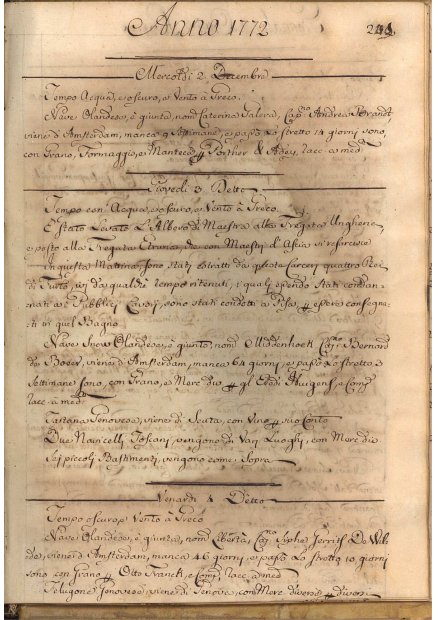 Anno 1772
Mercoldi 2. Decembre
Tempo Acqua, e oscuro, e Vento à Greco.
Nave Olandese, è giunta, nom.ta Caterina Galera, Cap.no Andrea Brandt
viene d'Amsterdam, manca 9 Settimane, e passò lo Stretto 14 giorni sono,
con Grano, Formaggio, e Manteca
Giovedi 3. Detto
Tempo con Acqua, e oscuro, e Vento à Greco.
È Stato Levato L'Albero di Maestra alla Fregata Ungherie
e posto alla Fregata Etruria, da con Maestri d'Ascia vi
In questa Mattina, sono stati estratti da queste Carceri quattro Rei
di Furto, ivi da qualche tempo ritenuti, i quali essendo stati condan-
nati a Pubblici Lavori, sono stati condotti a Pisa, essere consegna-
ti in quel Bagno.
Nave Snow Olandese, è giunto, nom.to Middenhoek Cap.no Bernard
dos Boer, viene d'Amsterdam, manca 64 giorni, e passò lo Stretto 3
Settimane sono, con Grano, e Merc. div.e gl'Eredi Huigens, e Comp.
racc. à med.
Tartana Genovese, viene di Seuta, con Vino suo Conto
Due Navicelli Toscani, vengono di Varj Luoghi, con Merc. div.e
Sei piccoli Bastimenti, vengono come Sopra
Venardi 4. Detto
Tempo oscuro, e Vento à Greco
Nave Olandese, è giunta, nom.ta Liberta, Cap.no
viene d'Amsterdam, manca 46 giorni, e passò lo Stretto 10 giorni
sono, con Grano Otto Franck, e Comp. racc. a med.
Felugone Genovese, viene di Genova, con Merc. diverse diversi